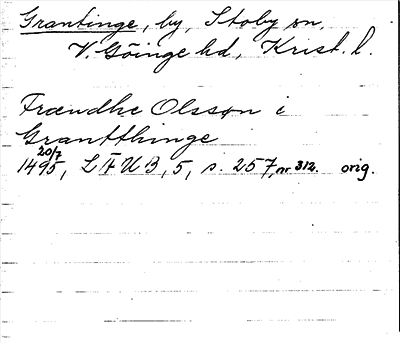 Grantinge, by, Stoby sn,
V. Göinge hd, Krist. l.
Frændhe Olsson i
Grantthinge
20/7
1495, LÄUB, 5, s. 257, nr 312. orig.